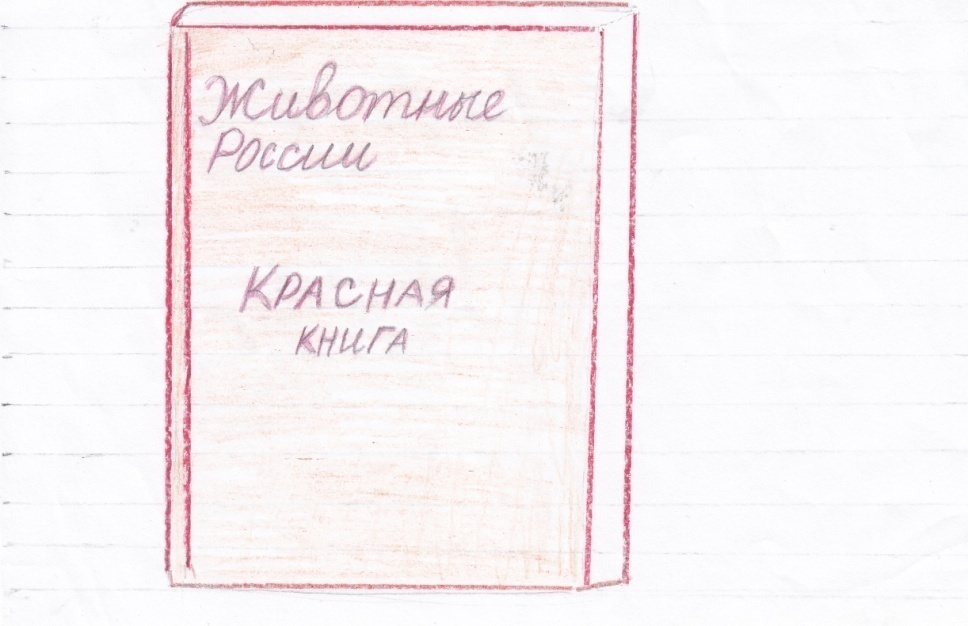 Животные
России
КРАСНАЯ
КНИГА